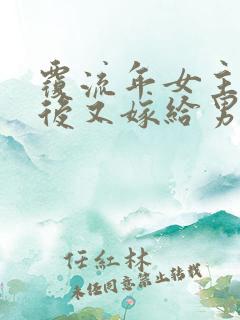 覆流年女主
後又嫁給男
任紅林
未经同意禁止转载